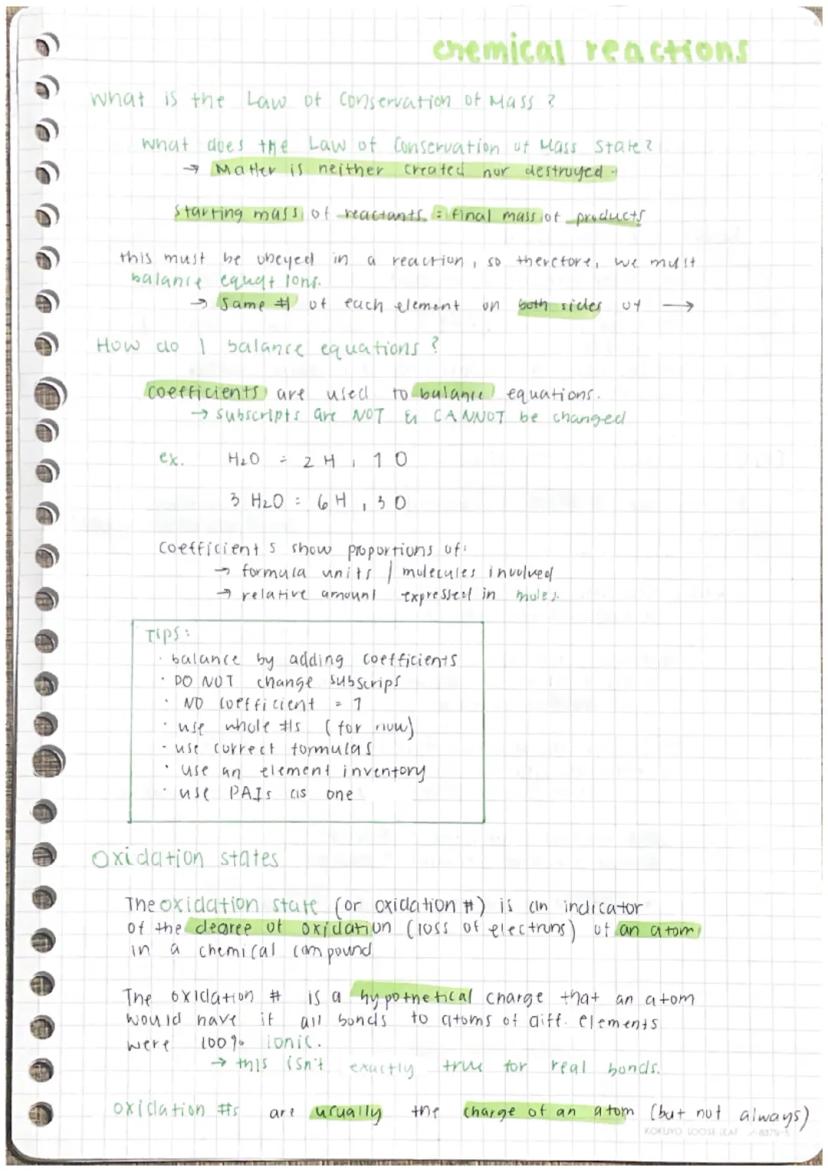 chemical reactions
What is the Law of Conservation of Mass?
What does the Law of Conservation of Mass State?
→ Matter is neither created nor destroyed.
starting mass of reactants = final mass of products
this must be obeyed in a reaction, so therefore, we must
balance equations.
→ Same # of each element on both sides of →
How do I balance equations?
coefficients are used to balance equations.
→ subscripts are NOT & CANNOT be changed
ex. H₂O = 2 H, 1 O
3 H₂O = 6 H, 3 O
Coefficients show proportions of:
→ formula units / molecules involved
→ relative amount expressed in moles.
TIPS:
· balance by adding coefficients
· DO NOT change subscrips
· NO coefficient = 1
· use whole #s (for now)
· use correct formulas
· use an element inventory
· use PAIs as one
Oxidation states
The oxidation state (or oxidation #) is an indicator
of the degree of oxidation (loss of electrons) of an atom
in a chemical compound
The oxidation # is a hypothetical charge that an atom
would have if all bonds to atoms of diff. elements
were 100% ionic.
→ this isn't exactly true for real bonds.
oxidation #s are usually the charge of an atom (but not always)
KOKUYO LOOSE-LEAF